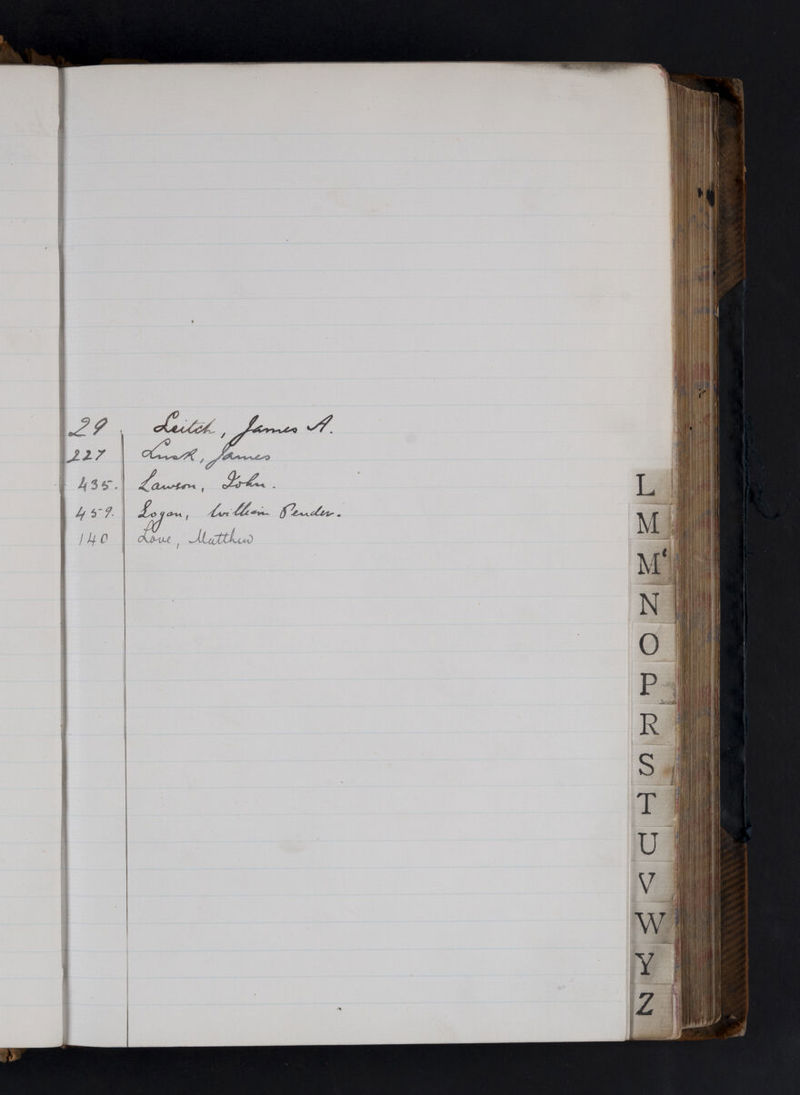 29 Leitch, James A.
227 Lusk, James
435. Lawson, John.
459. Logan, William Pender.
140 Love, Matthew
L
M
M‘
N
O
P
R
S
T
U
V
W
Y
Z